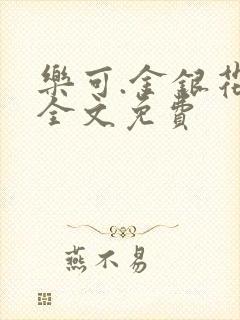 樂可.金銀花
全文免費
燕不易